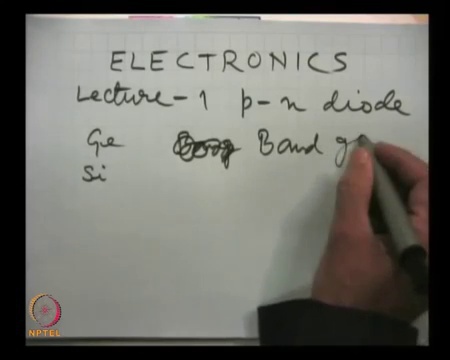 ELECTRONICS
Lecture-1 p-n diode
Ge Band g
Si
NPTEL